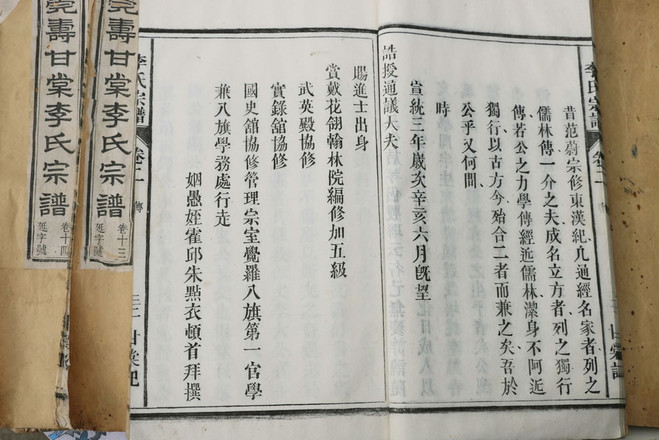 昔范蔚宗修東漢紀凡通經名家者列之
儒林傳一介之夫成名立方者列之獨行
傳若公之力學傳經近儒林潔身不阿近
獨行以古方今殆合二者而兼之矣吾於
公乎又何間
時
宣統三年歲次辛亥六月既望
誥授通議大夫
賜進士出身
賞戴花翎翰林院編修加五級
武英殿協修
實錄館協修
國史館協修管理宗室覺羅八旗第一官學
兼八旗學務處行走
姻愚姪霍邱朱點衣頓首拜撰
李氏宗譜
卷二
傳
李氏宗譜
卷二
傳
壽甘棠李氏宗譜
卷十三
延字號
壽甘棠李氏宗譜
卷十四
延字號